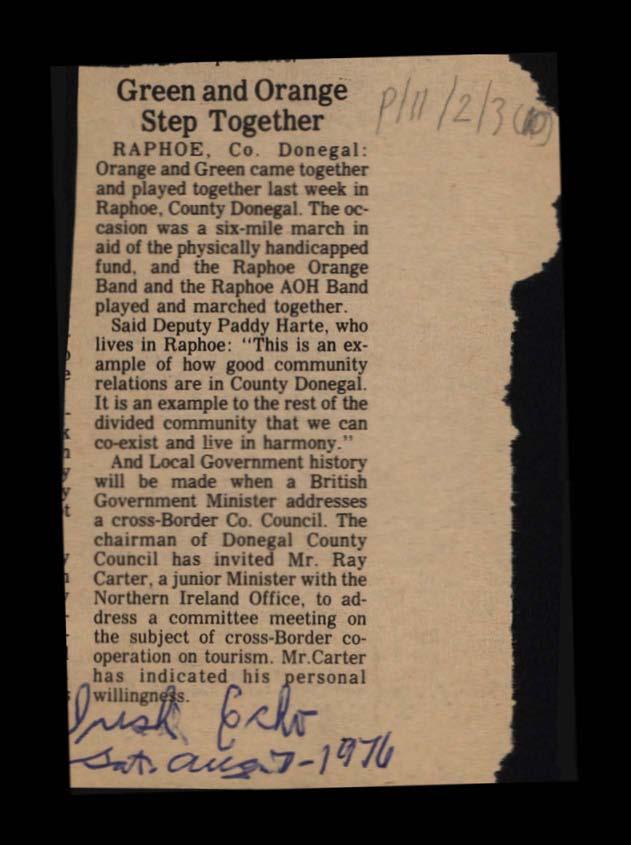 Green and Orange
Step Together
P/11/2/3(10)
RAPHOE, Co. Donegal:
Orange and Green came together
and played together last week in
Raphoe, County Donegal. The oc-
casion was a six-mile march in
aid of the physically handicapped
fund, and the Raphoe Orange
Band and the Raphoe AOH Band
played and marched together.
Said Deputy Paddy Harte, who
lives in Raphoe: "This is an ex-
ample of how good community
relations are in County Donegal.
It is an example to the rest of the
divided community that we can
co-exist and live in harmony."
And Local Government history
will be made when a British
Government Minister addresses
a cross-Border Co. Council. The
chairman of Donegal County
Council has invited Mr. Ray
Carter, a junior Minister with the
Northern Ireland Office, to ad-
dress a committee meeting on
the subject of cross-Border co-
operation on tourism. Mr.Carter
has indicated his personal
willingness.
Irish Echo
Sat. Aug. 7-1976